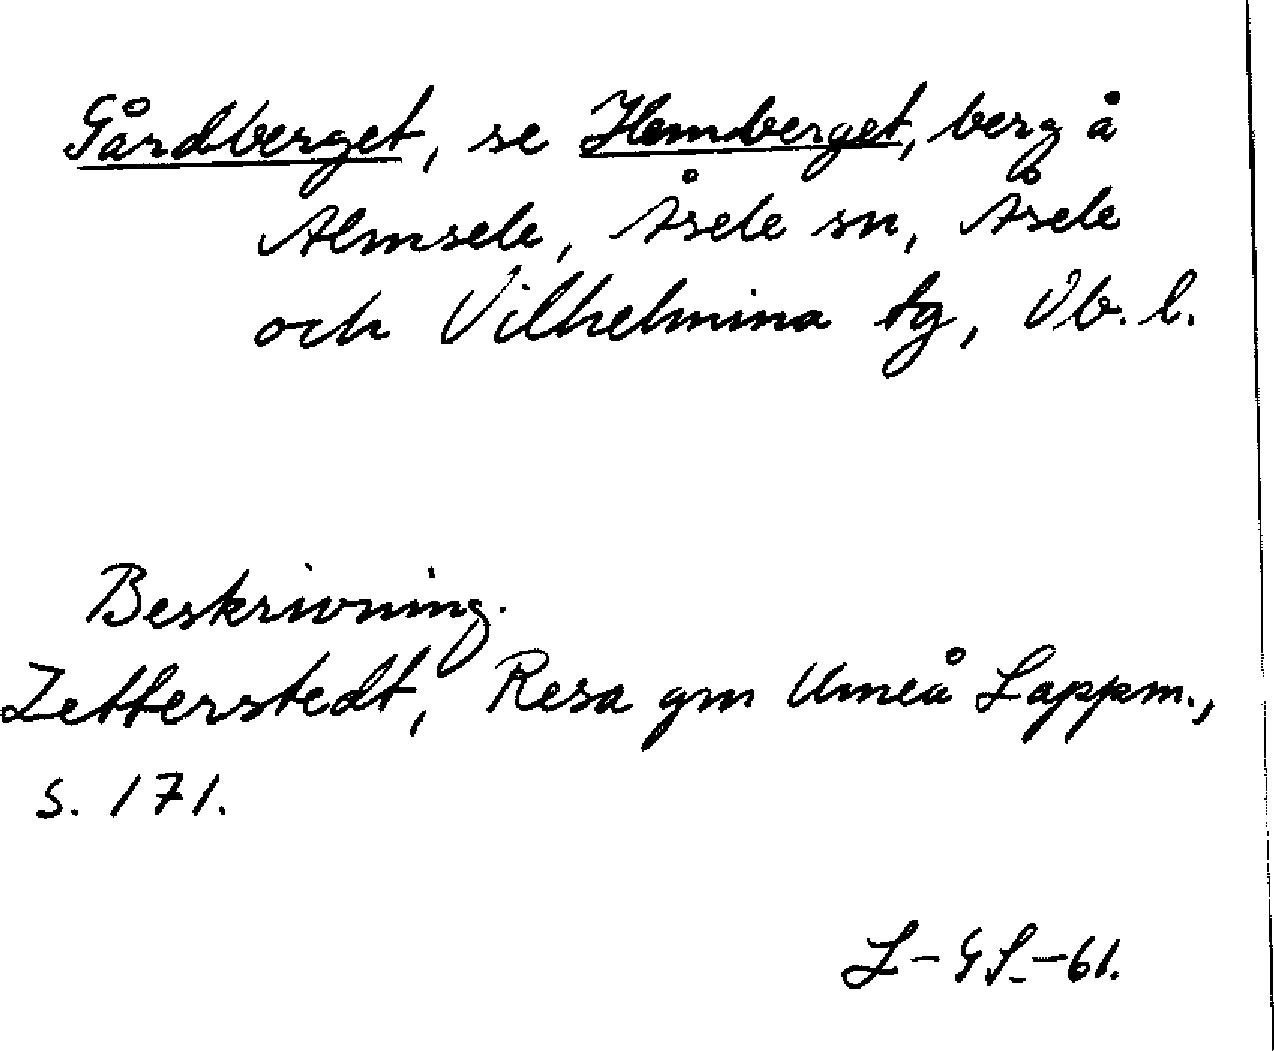 Gårdberget, se Hemberget, berg å
Almsele, Åsele sn, Åsele
och Vilhelmina tg, Vb. l.
Beskrivning.
Zetterstedt, Resa gm Umeå Lappm.,
s. 171.
L-GS.-61.